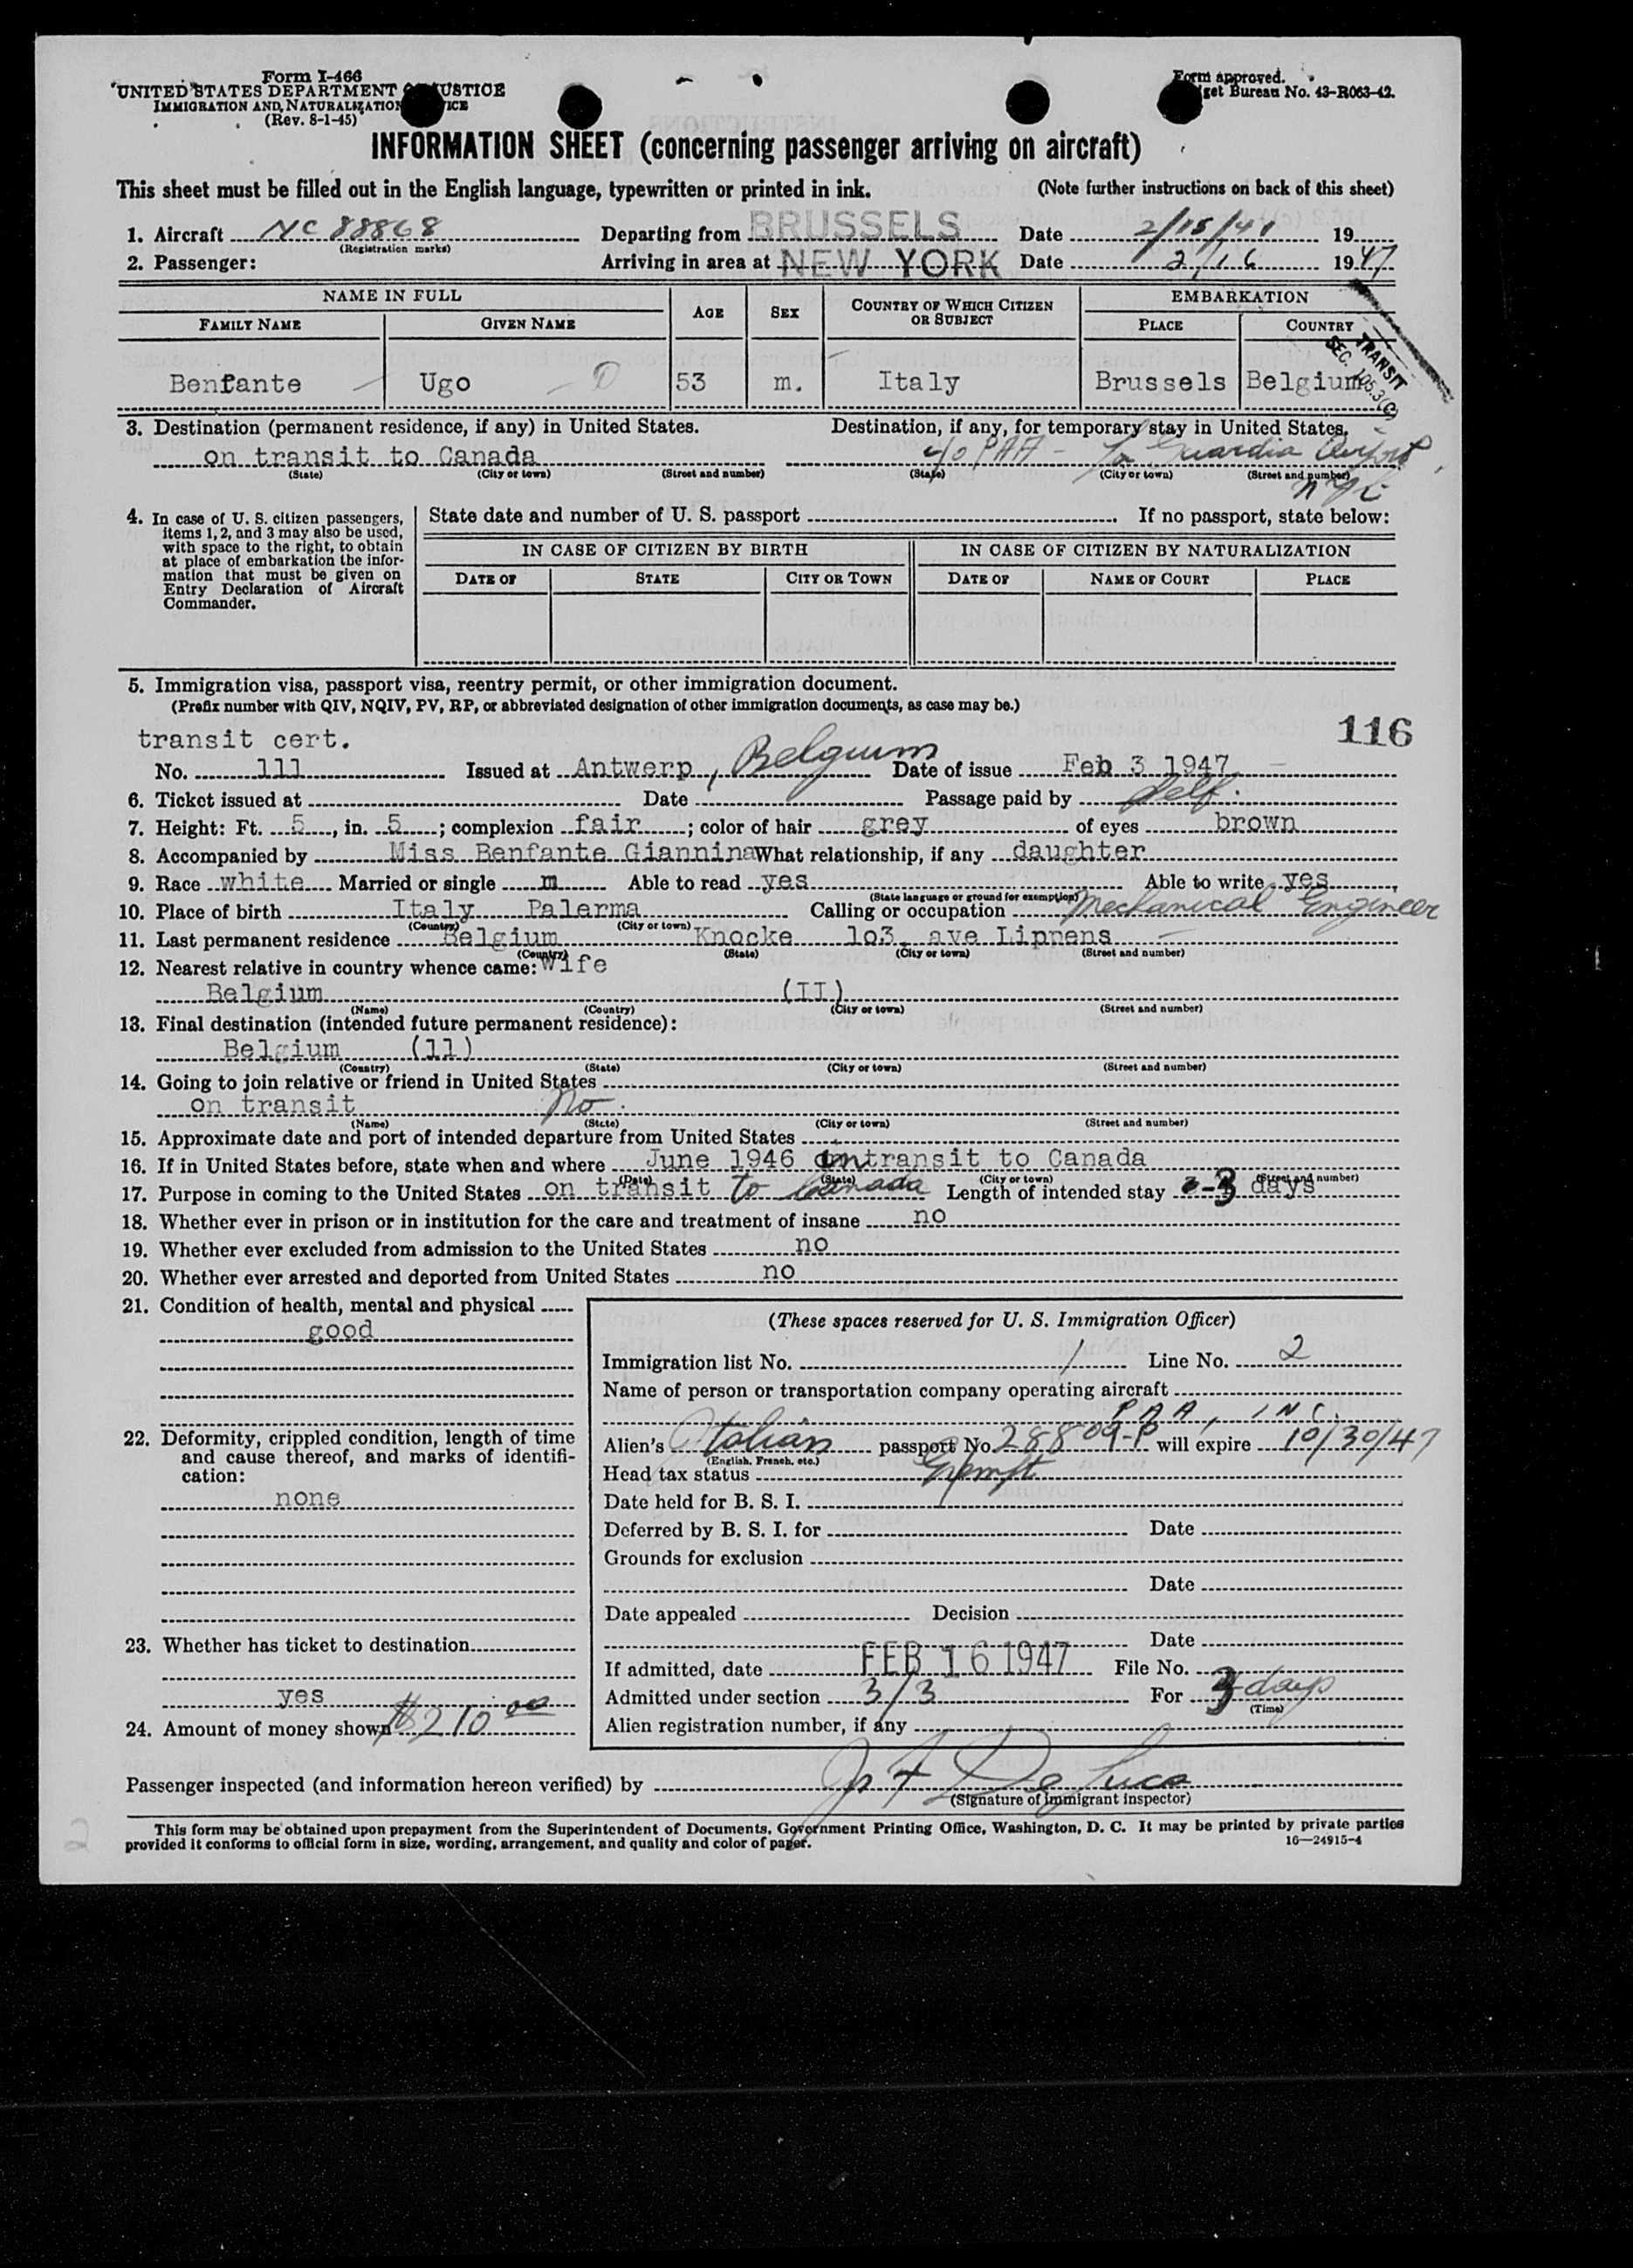 Form I-466
UNITED STATES DEPARTMENT OF JUSTICE
IMMIGRATION AND NATURALIZATION SERVICE
(Rev. 8-1-45)
Form approved.
Budget Bureau No. 43-R063-42.
INFORMATION SHEET (concerning passenger arriving on aircraft)
This sheet must be filled out in the English language, typewritten or printed in ink. (Note further instructions on back of this sheet)
1. Aircraft NC 88868 Departing from BRUSSELS Date 2/15/47 19
(Registration marks)
2. Passenger: Arriving in area at NEW YORK Date 2/16 1947
NAME IN FULL AGE SEX COUNTRY OF WHICH CITIZEN OR SUBJECT EMBARKATION
FAMILY NAME GIVEN NAME PLACE COUNTRY
TRANSIT
SEC.
Benfante Ugo 53 m. Italy Brussels Belgium
3. Destination (permanent residence, if any) in United States. Destination, if any, for temporary stay in United States.
on transit to Canada c/o PAA - La Guardia Airport
(State) (City or town) (Street and number) (State) (City or town) (Street and number)
NYC
4. In case of U. S. citizen passengers, items 1, 2, and 3 may also be used, with space to the right, to obtain at place of embarkation the information that must be given on Entry Declaration of Aircraft Commander.
State date and number of U. S. passport If no passport, state below:
IN CASE OF CITIZEN BY BIRTH IN CASE OF CITIZEN BY NATURALIZATION
DATE OF STATE CITY OR TOWN DATE OF NAME OF COURT PLACE
5. Immigration visa, passport visa, reentry permit, or other immigration document.
(Prefix number with QIV, NQIV, PV, RP, or abbreviated designation of other immigration documents, as case may be.)
116
transit cert.
No. 111 Issued at Antwerp, Belgium Date of issue Feb 3 1947
6. Ticket issued at Date Passage paid by Self.
7. Height: Ft. 5, in. 5; complexion fair; color of hair grey of eyes brown
8. Accompanied by Miss Benfante Giannina What relationship, if any daughter
9. Race white Married or single m Able to read yes Able to write yes,
(State language or ground for exemption)
10. Place of birth Italy Palerma Calling or occupation Mechanical Engineer
(Country) (City or town)
11. Last permanent residence Belgium Knocke 1o3, ave Lippens
(Country) (State) (City or town) (Street and number)
12. Nearest relative in country whence came: Wife
Belgium (II)
(Name) (Country) (City or town) (Street and number)
13. Final destination (intended future permanent residence):
Belgium (11)
(Country) (State) (City or town) (Street and number)
14. Going to join relative or friend in United States
on transit no.
(Name) (State) (City or town) (Street and number)
15. Approximate date and port of intended departure from United States
16. If in United States before, state when and where June 1946 in transit to Canada
(Date) (State) (City or town) (Street and number)
17. Purpose in coming to the United States on transit to Canada Length of intended stay 3 days
18. Whether ever in prison or in institution for the care and treatment of insane no
19. Whether ever excluded from admission to the United States no
20. Whether ever arrested and deported from United States no
21. Condition of health, mental and physical
good
22. Deformity, crippled condition, length of time and cause thereof, and marks of identification:
none
23. Whether has ticket to destination
yes
24. Amount of money shown $210 00
(These spaces reserved for U. S. Immigration Officer)
Immigration list No. 1 Line No. 2
Name of person or transportation company operating aircraft
PAA, INC.
Alien's Italian passport No. 28809-P will expire 10/30/47
(English, French, etc.)
Head tax status Exempt
Date held for B. S. I.
Deferred by B. S. I. for Date
Grounds for exclusion
Date
Date appealed Decision
Date
If admitted, date FEB 16 1947 File No.
Admitted under section 3/3 For 3 days
(Time)
Alien registration number, if any
Passenger inspected (and information hereon verified) by De Luca
(Signature of immigrant inspector)
This form may be obtained upon prepayment from the Superintendent of Documents, Government Printing Office, Washington, D. C. It may be printed by private parties
provided it conforms to official form in size, wording, arrangement, and quality and color of paper. 16—24915-4
2